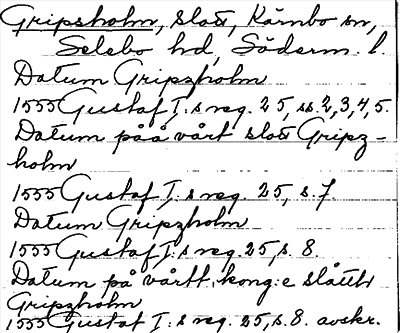 Gripsholm, slott, Kärnbo sn,
Selebo hd, Söderm. l.
Datum Gripzholm
1555 Gustaf I:s reg. 25, ss. 2, 3, 4, 5.
Datum påå vårt slott Gripz-
holm
1555 Gustaf I:s reg. 25, s. 7.
Datum Gripzholm
1555 Gustaf I:s reg. 25, s. 8.
Datum på vårtt kong:e slåtth
Gripzholm
1555 Gustaf I:s reg. 25, s. 8. avskr.